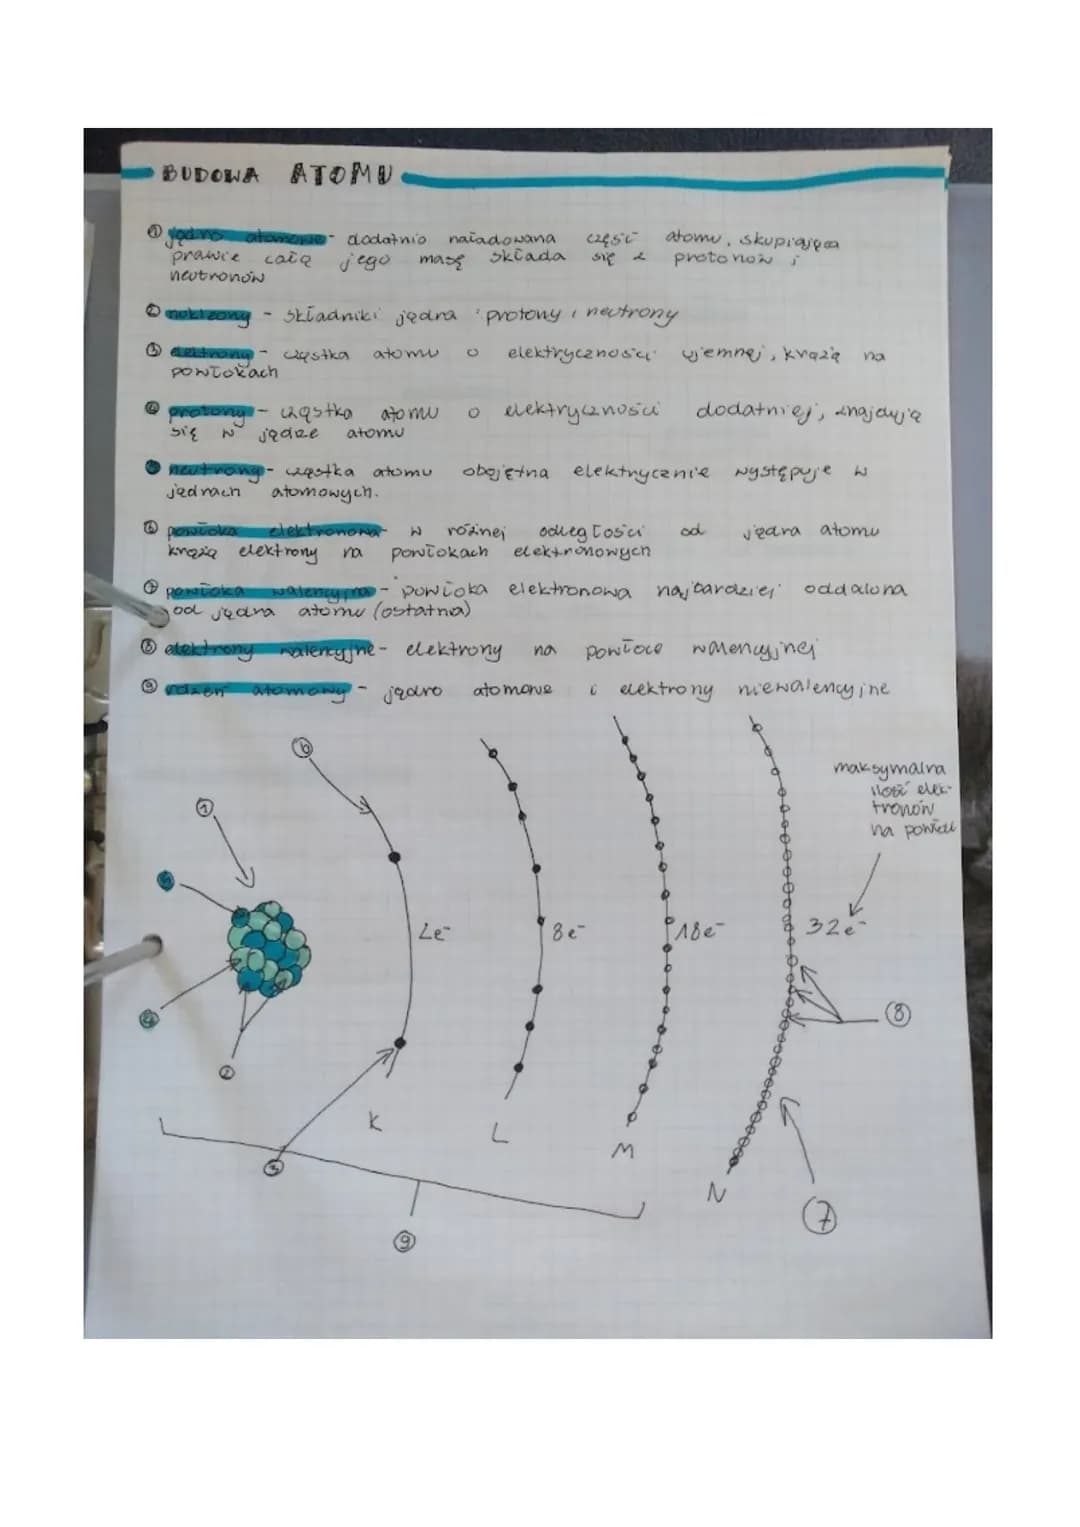 BUDOWA ATOMU
① jądro atomowe - dodatnio naładowana część atomu, skupiająca
prawie całą jego masę składa się z protonów i
neutronów
② nukleony - składniki jądra : protony i neutrony
③ elektrony - cząstka atomu o elektryczności ujemnej, krążą na
powłokach
④ protony - cząstka atomu o elektryczności dodatniej, znajdują
się w jądze atomu
⑤ neutrony - cząstka atomu obojętna elektrycznie występuje w
jądrach atomowych.
⑥ powłoka elektronowa - w różnej odległości od jądra atomu
krążą elektrony na powłokach elektronowych
⑦ powłoka walencyjna - powłoka elektronowa najbardziej oddalona
od jądra atomu (ostatnia)
⑧ elektrony walencyjne - elektrony na powłoce walencyjnej
⑨ rdzeń atomowy - jądro atomowe i elektrony niewalencyjne
⑥
maksymalna
ilość elek-
tronów
na powłoce
①
⑤
2e⁻
8e⁻
18e⁻
32e⁻
④
⑧
②
K
L
M
N
③
⑦
⑨